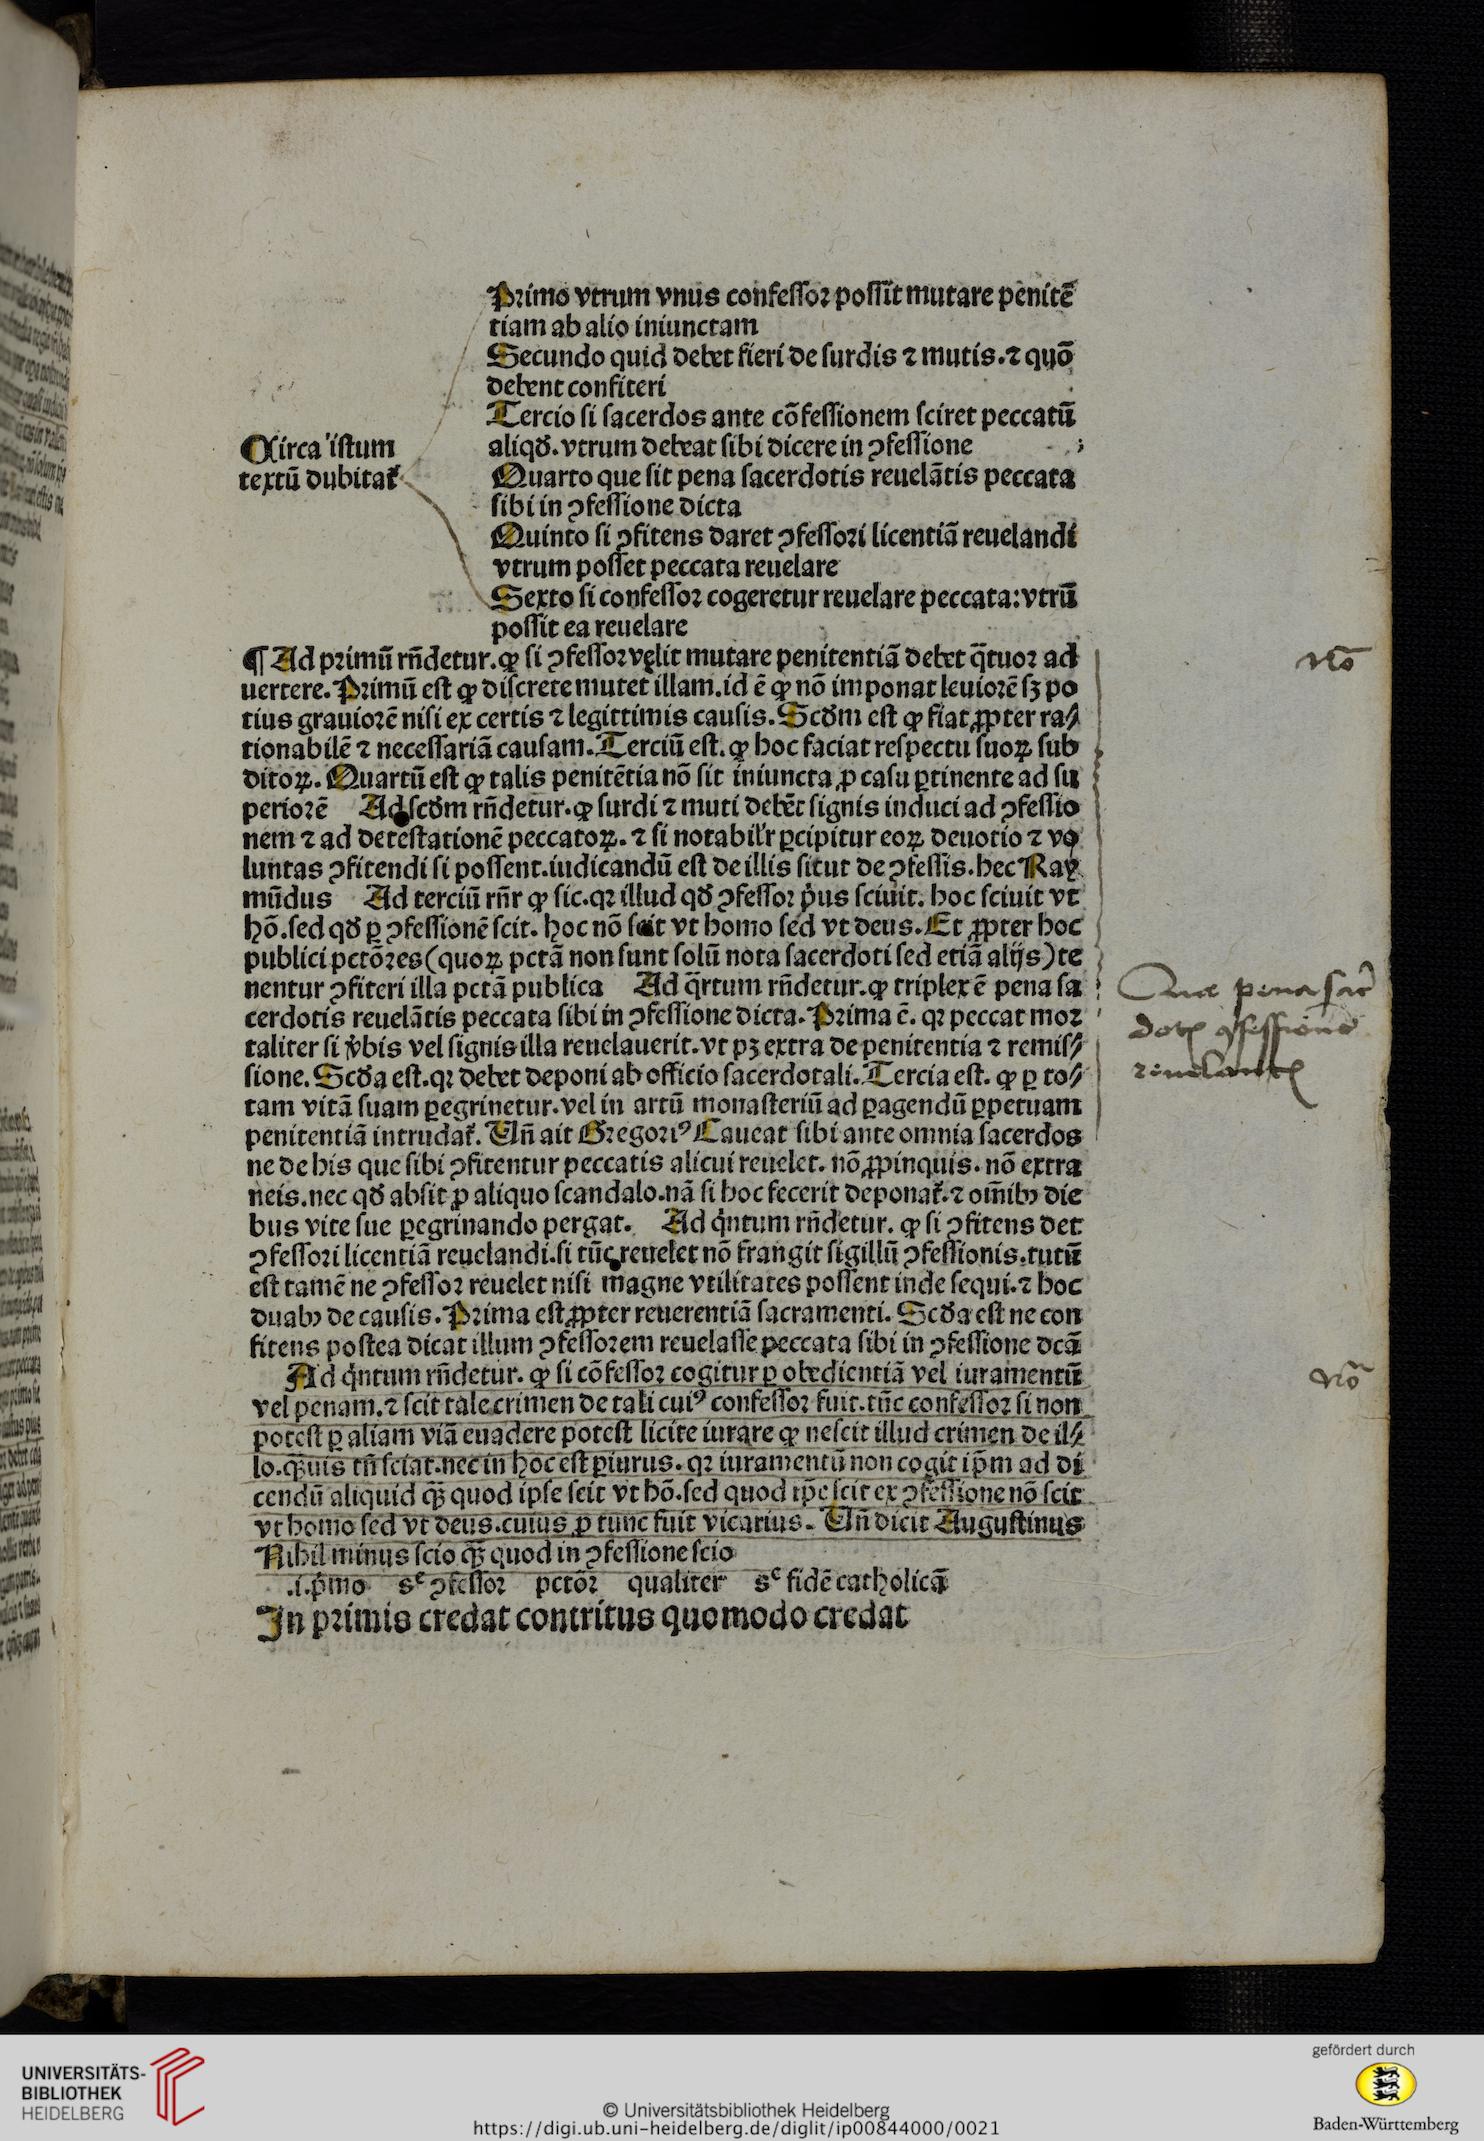 Primo vtrum vnus confessor possit mutare penitē
tiam ab alio iniunctam
Secundo quid debet fieri de surdis ⁊ mutis.⁊ quō
debent confiteri
Tercio si sacerdos ante cōfessionem sciret peccatū
aliqđ.vtrum debeat sibi dicere in ɔfessione
Quarto que sit pena sacerdotis reuelātis peccata
sibi in ɔfessione dicta
Quinto si ɔfitens daret ɔfessori licentiā reuelandi
vtrum posset peccata reuelare
Sexto si confessor cogeretur reuelare peccata:vtrū
possit ea reuelare
Circa istum
textū dubitat̃
¶ Ad primū rñdetur.ꝙ si ɔfessor velit mutare penitentiā debet q̄tuor ad
uertere.Primū est ꝙ discrete mutet illam.id ē ꝙ nō imponat leuiorē sꝫ po
tius grauiorē nisi ex certis ⁊ legittimis causis.Scđm est ꝙ fiat ꝓpter ra⸗
tionabilē ⁊ necessariā causam.Terciū est.ꝙ hoc faciat respectu suoꝝ sub
ditoꝝ.Quartū est ꝙ talis penitētia nō sit iniuncta ꝓ casu ꝑtinente ad su
periorē Ad scđm rñdetur.ꝙ surdi ⁊ muti debēt signis induci ad ɔfessio
nem ⁊ ad detestationē peccatoꝝ.⁊ si notabilr̃ ꝑcipitur eoꝝ deuotio ⁊ vo
luntas ɔfitendi si possent.iudicandū est de illis sicut de ɔfessis.hec Ray
mūdus Ad terciū rñr ꝙ sic.qꝛ illud qđ ɔfessor p̄us sciuit. hoc sciuit vt
hō.sed qđ ꝑ ɔfessionē scit. hoc nō scit vt homo sed vt deus.Et ꝓpter hoc
publici pctōres(quoꝝ pctā non sunt solū nota sacerdoti sed etiā alijs)te
nentur ɔfiteri illa pctā publica Ad q̄rtum rñdetur.ꝙ triplex ē pena sa
cerdotis reuelātis peccata sibi in ɔfessione dicta.Prima ē. qꝛ peccat mor
taliter si v̄bis vel signis illa reuelauerit.vt pꝫ extra de penitentia ⁊ remis⸗
sione.Scđa est.qꝛ debet deponi ab officio sacerdotali.Tercia est. ꝙ ꝑ to⸗
tam vitā suam ꝑegrinetur.vel in artū monasteriū ad ꝑagendū ꝑpetuam
penitentiā intrudat̃. Vñ ait Gregoriꝰ Caueat sibi ante omnia sacerdos
ne de his que sibi ɔfitentur peccatis alicui reuelet. nō ꝓpinquis. nō extra
neis.nec qđ absit ꝓ aliquo scandalo.nā si hoc fecerit deponat̃.⁊ om̄ibꝫ die
bus vite sue ꝑegrinando pergat. Ad q̇ntum rñdetur. ꝙ si ɔfitens det
ɔfessori licentiā reuelandi.si tūc reuelet nō frangit sigillū ɔfessionis.tutū
est tamē ne ɔfessor reuelet nisi magne vtilitates possent inde sequi.⁊ hoc
duabꝫ de causis.Prima est ꝓpter reuerentiā sacramenti. Scđa est ne con
fitens postea dicat illum ɔfessorem reuelasse peccata sibi in ɔfessione dcā
Ad q̇ntum rñdetur. ꝙ si cōfessor cogitur ꝑ obedientiā vel iuramentū
vel penam.⁊ scit tale crimen de tali cuiꝰ confessor fuit.tūc confessor si non
potest ꝑ aliam viā euadere potest licite iurare ꝙ nescit illud crimen de il⸗
lo.qͣuis tñ sciat.nec in hoc est ꝑiurus. qꝛ iuramentū non cogit ip̄m ad di
cendū aliquid qͣꝫ quod ipse scit vt hō.sed quod ip̄e scit ex ɔfessione nō scit
vt homo sed vt deus.cuius ꝓ tunc fuit vicarius. Vñ dicit Augustinus
Nihil minus scio qͣꝫ quod in ɔfessione scio
.i.p̄mo sͨ ɔfessor pctōr qualiter sͨ fidē catholicā
In primis credat contritus quomodo credat
Nō
Que pena sacer
dotis ɔfessionē
reuelantis
Nō
UNIVERSITÄTS-
BIBLIOTHEK
HEIDELBERG
© Universitätsbibliothek Heidelberg
https://digi.ub.uni-heidelberg.de/diglit/ip00844000/0021
gefördert durch
Baden-Württemberg